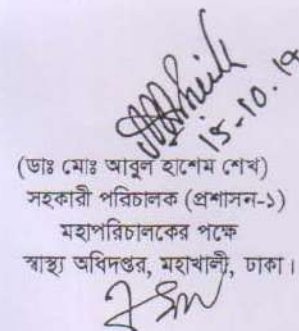 15-10.19
(ডাঃ মোঃ আবুল হাশেম শেখ)
সহকারী পরিচালক (প্রশাসন-১)
মহাপরিচালকের পক্ষে
স্বাস্থ্য অধিদপ্তর, মহাখালী, ঢাকা।